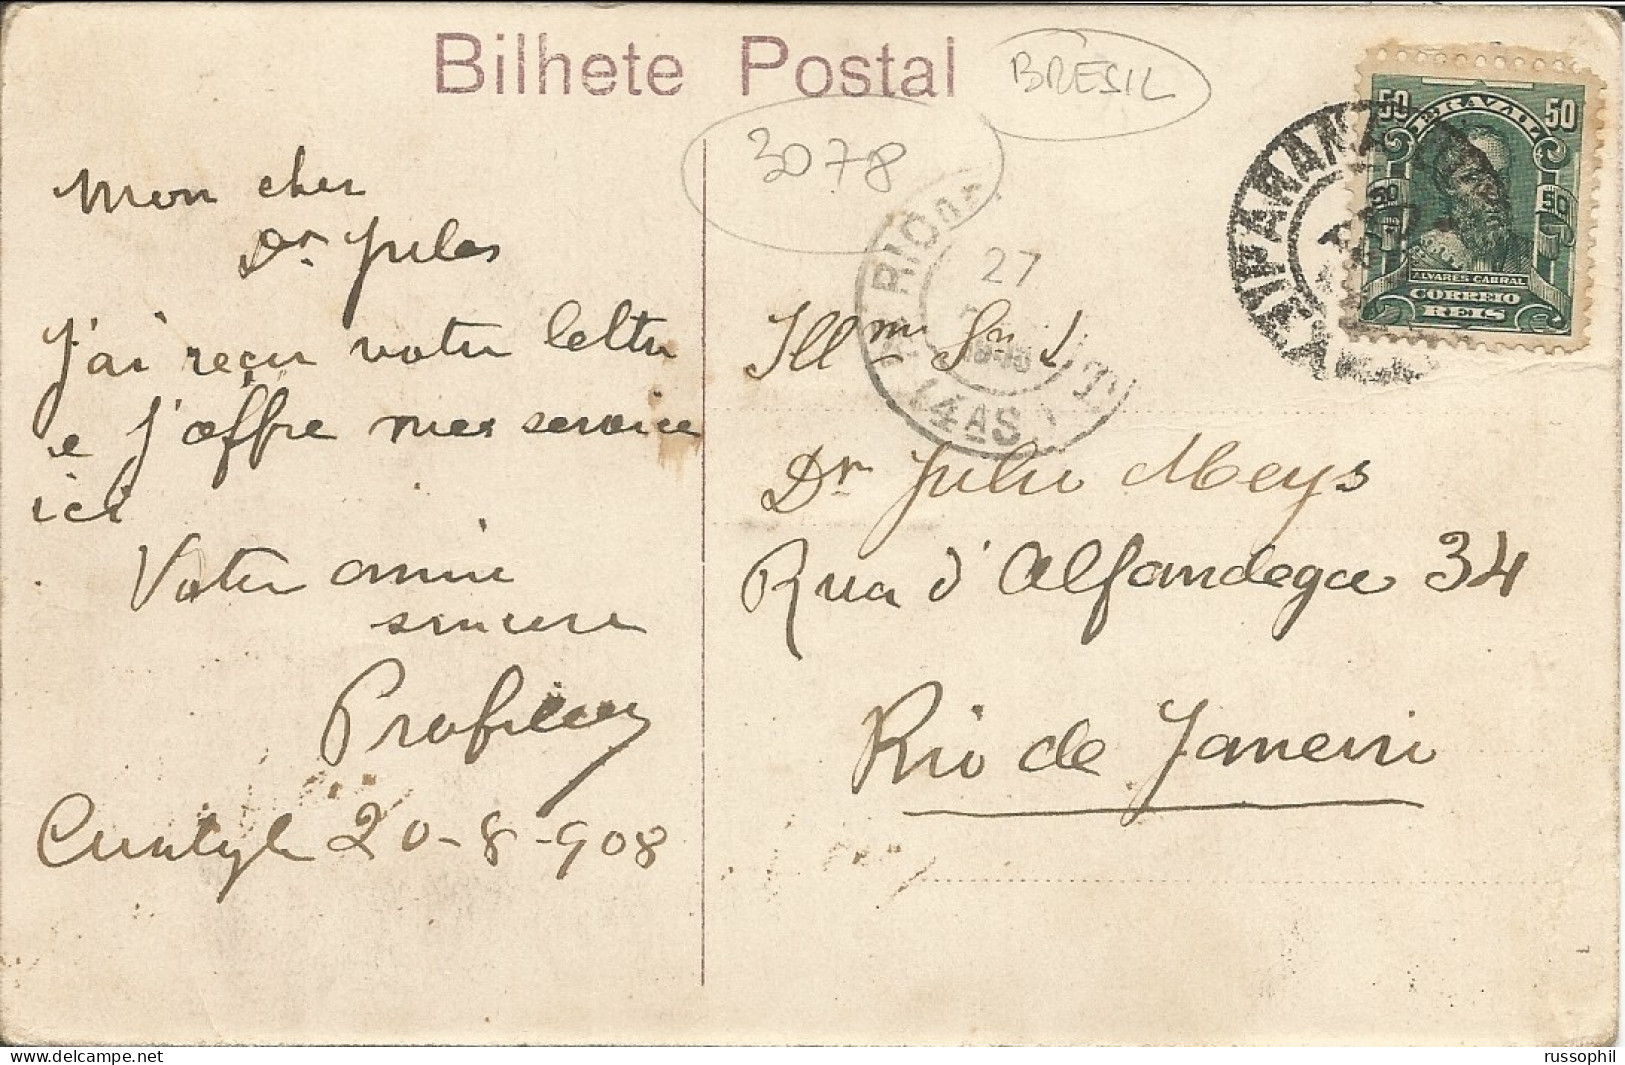 Bilhete Postal
BRESIL
3078
Mon cher
Dr Jules
J'ai reçu votre lettre
e j'offre mes service
ici
Votre amie
sincere
20-8-908
50 BRAZIL 50
50 50
ALVARES CABRAL
CORREIO
REIS
RIO
27
(4ª S
Illmo Snr
Dr Julio Meys
Rua d'Alfandega 34
Rio de Janeiro
russophil